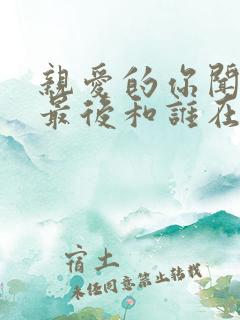 親愛的你聞
最後和誰在
宿土
未经同意禁止转载